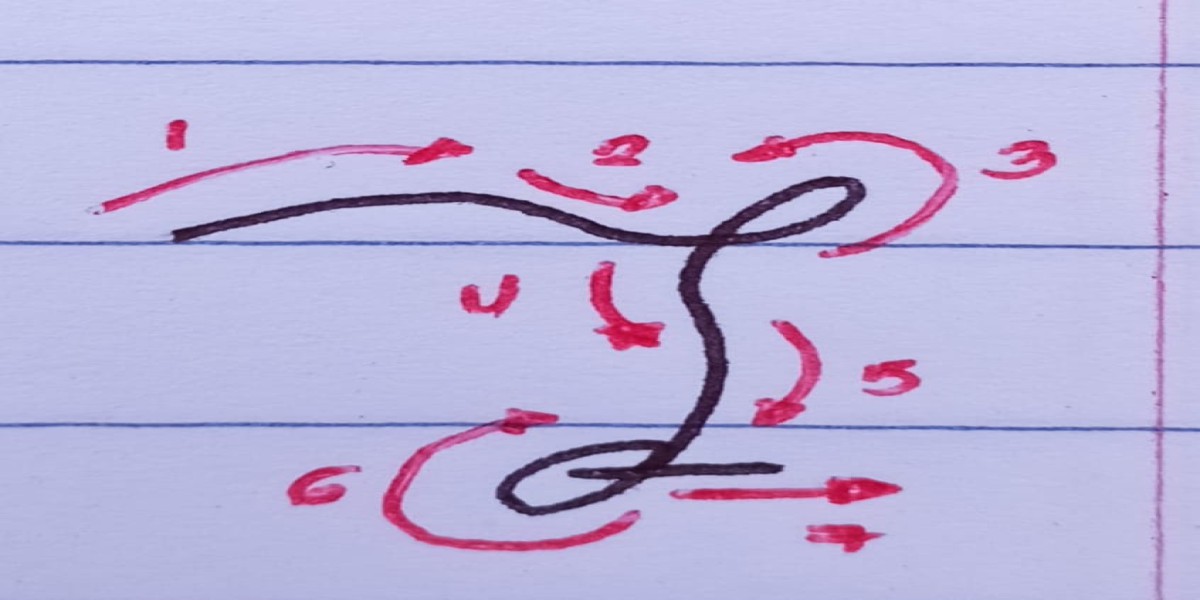 1 2 3
4
5
6
7